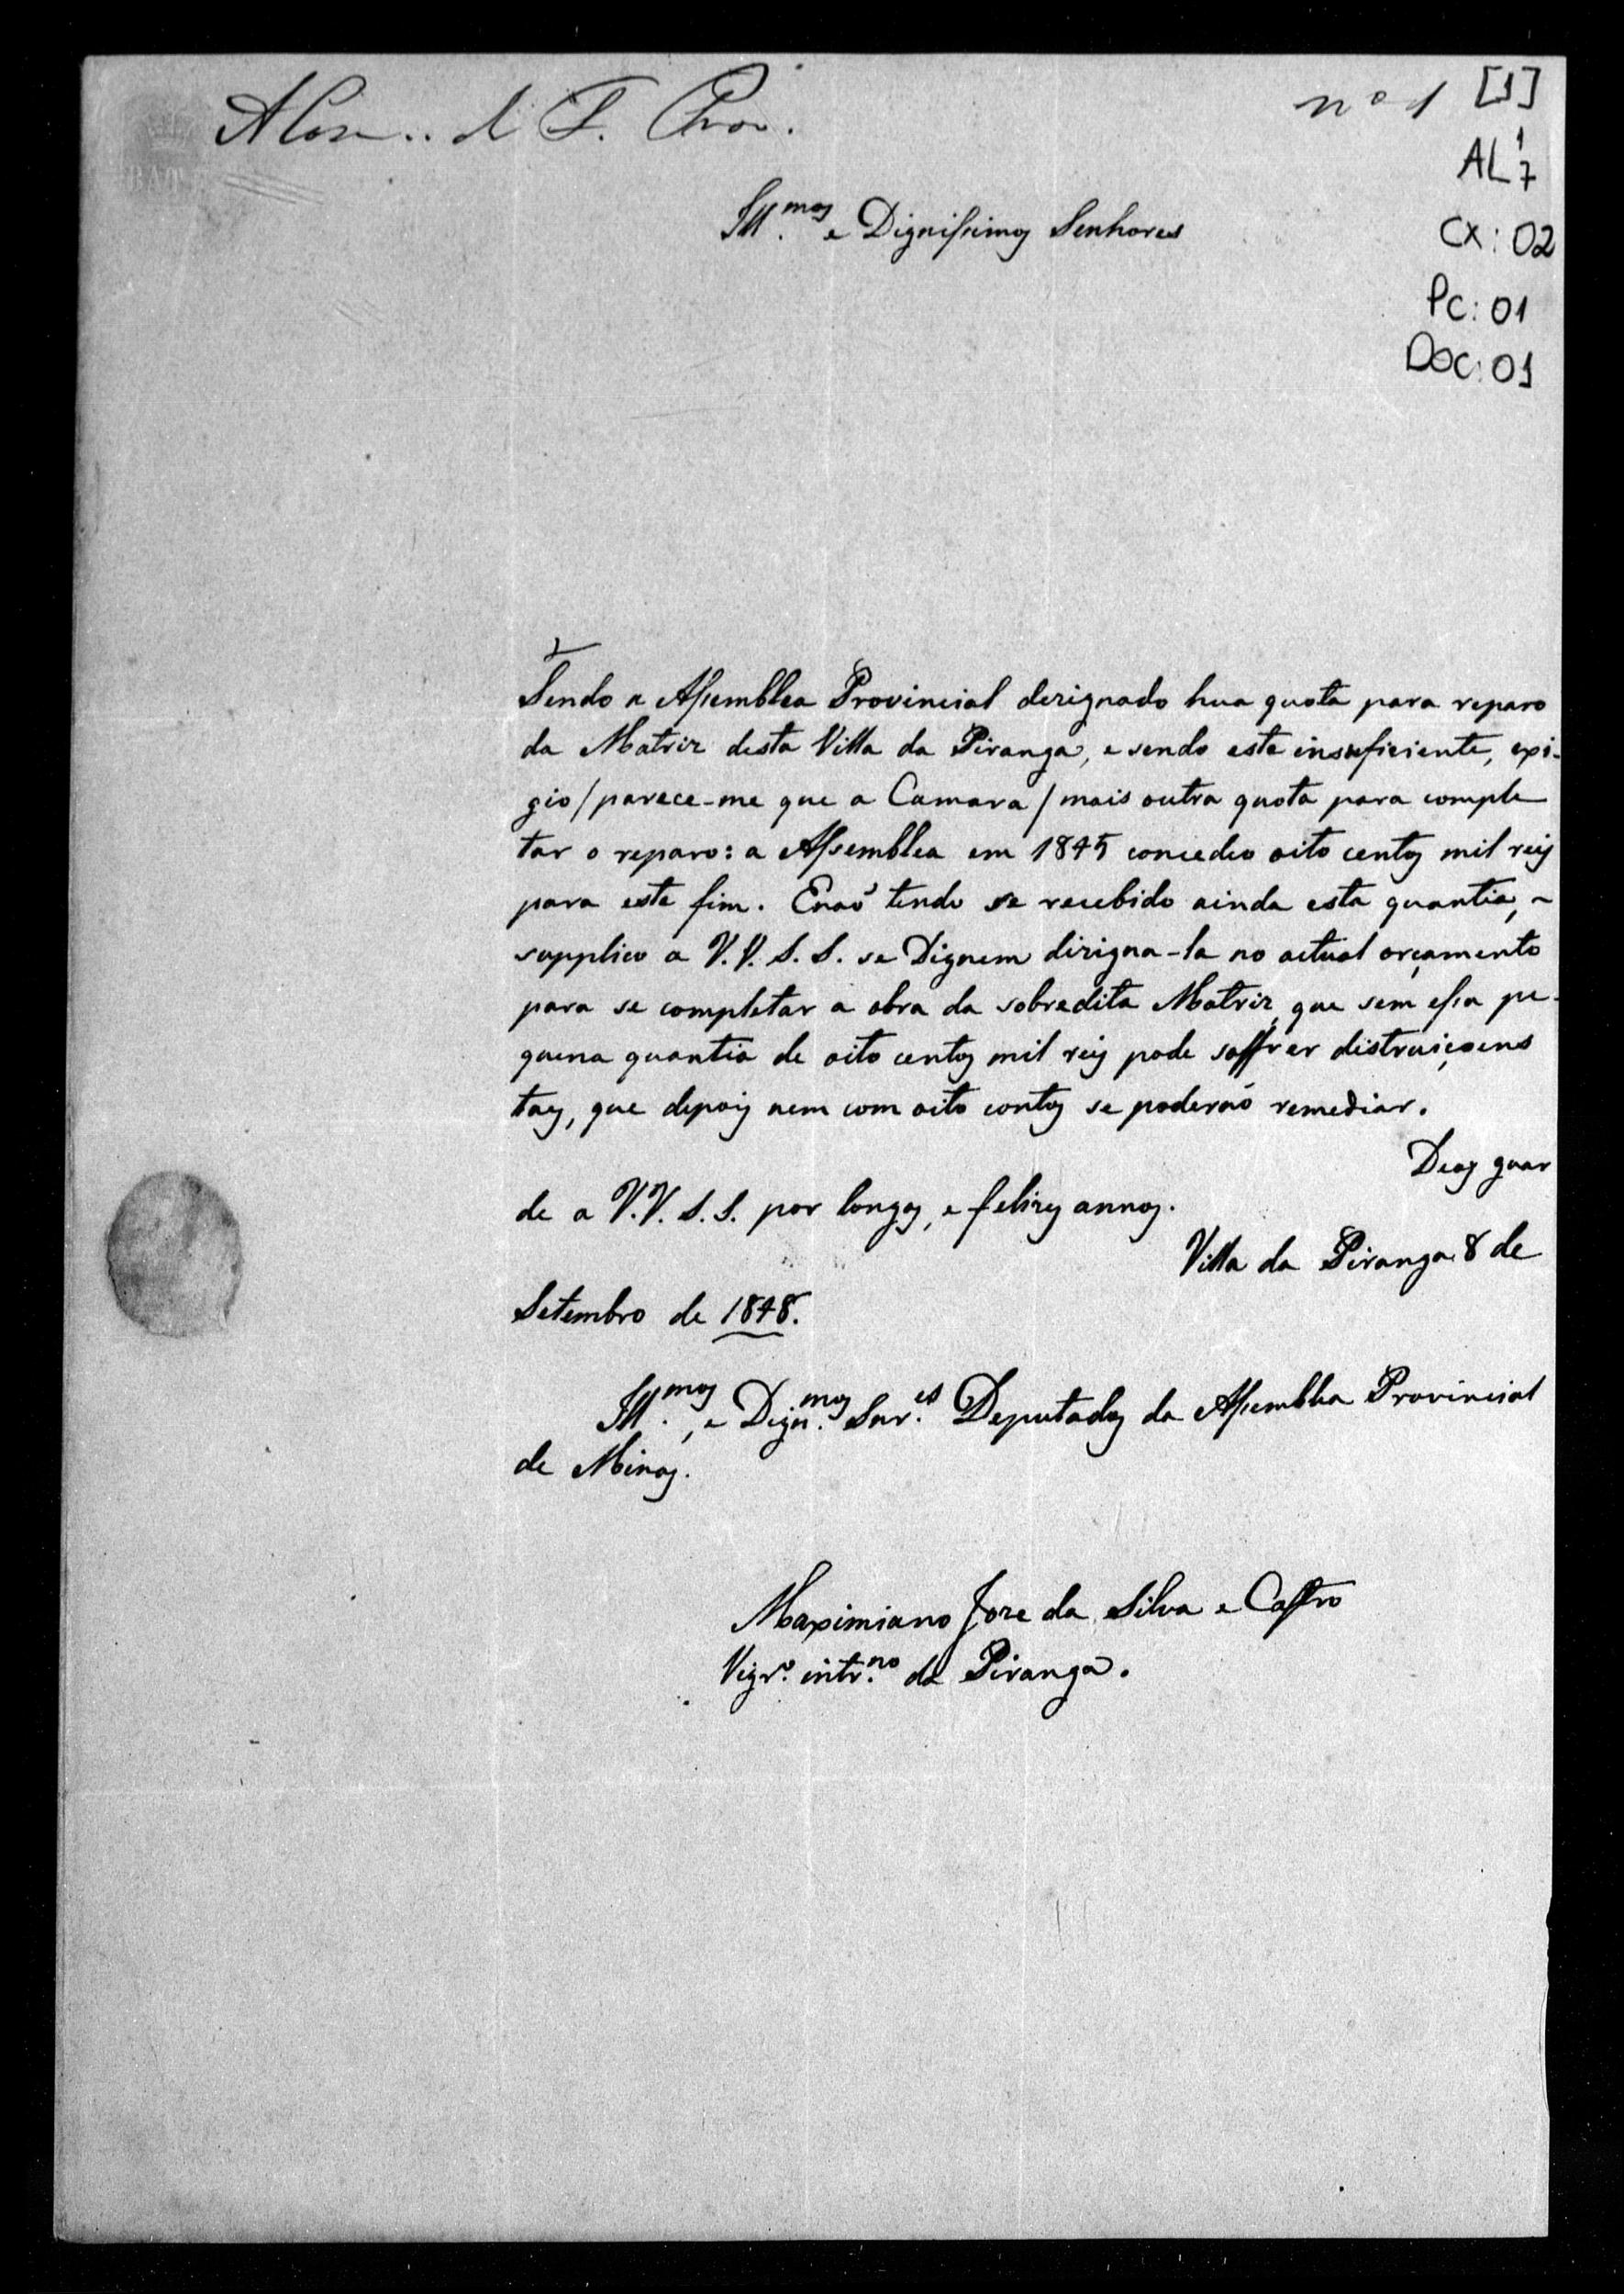 nº 1 [1]
AL 1
7
CX: 02
Pc: 01
Doc: 01
Illmos. e Dignissimos Senhores
Tendo a Assemblea Provincial dezignado hua quota para reparo
da Matriz desta Villa da Piranga, e sendo esta insuficiente, exi-
gio / parece-me que a Camara / mais outra quota para comple
tar o reparo: a Assemblea em 1845 concedeo oito centos mil reis
para este fim. Enaõ tendo se recebido ainda esta quantia, ~
supplico a V.V. S.S. se Dignem dizigna-la no actual orçamento
para se completar a obra da sobredita Matriz, que sem essa pe-
quena quantia de oito centos mil reis pode soffrer distruiçoens
taes, que depois nem com oito contos se poderaõ remediar.
Deos guar
de a V.V. S.S. por longos, e felizes annos.
Villa da Piranga 8 de
Setembro de 1848.
Illmos., e Dignmos. Snr.es Deputados da Assemblea Provincial
de Minas.
Maximiano Joze da Silva e Castro
Vigr.º intr.no da Piranga.